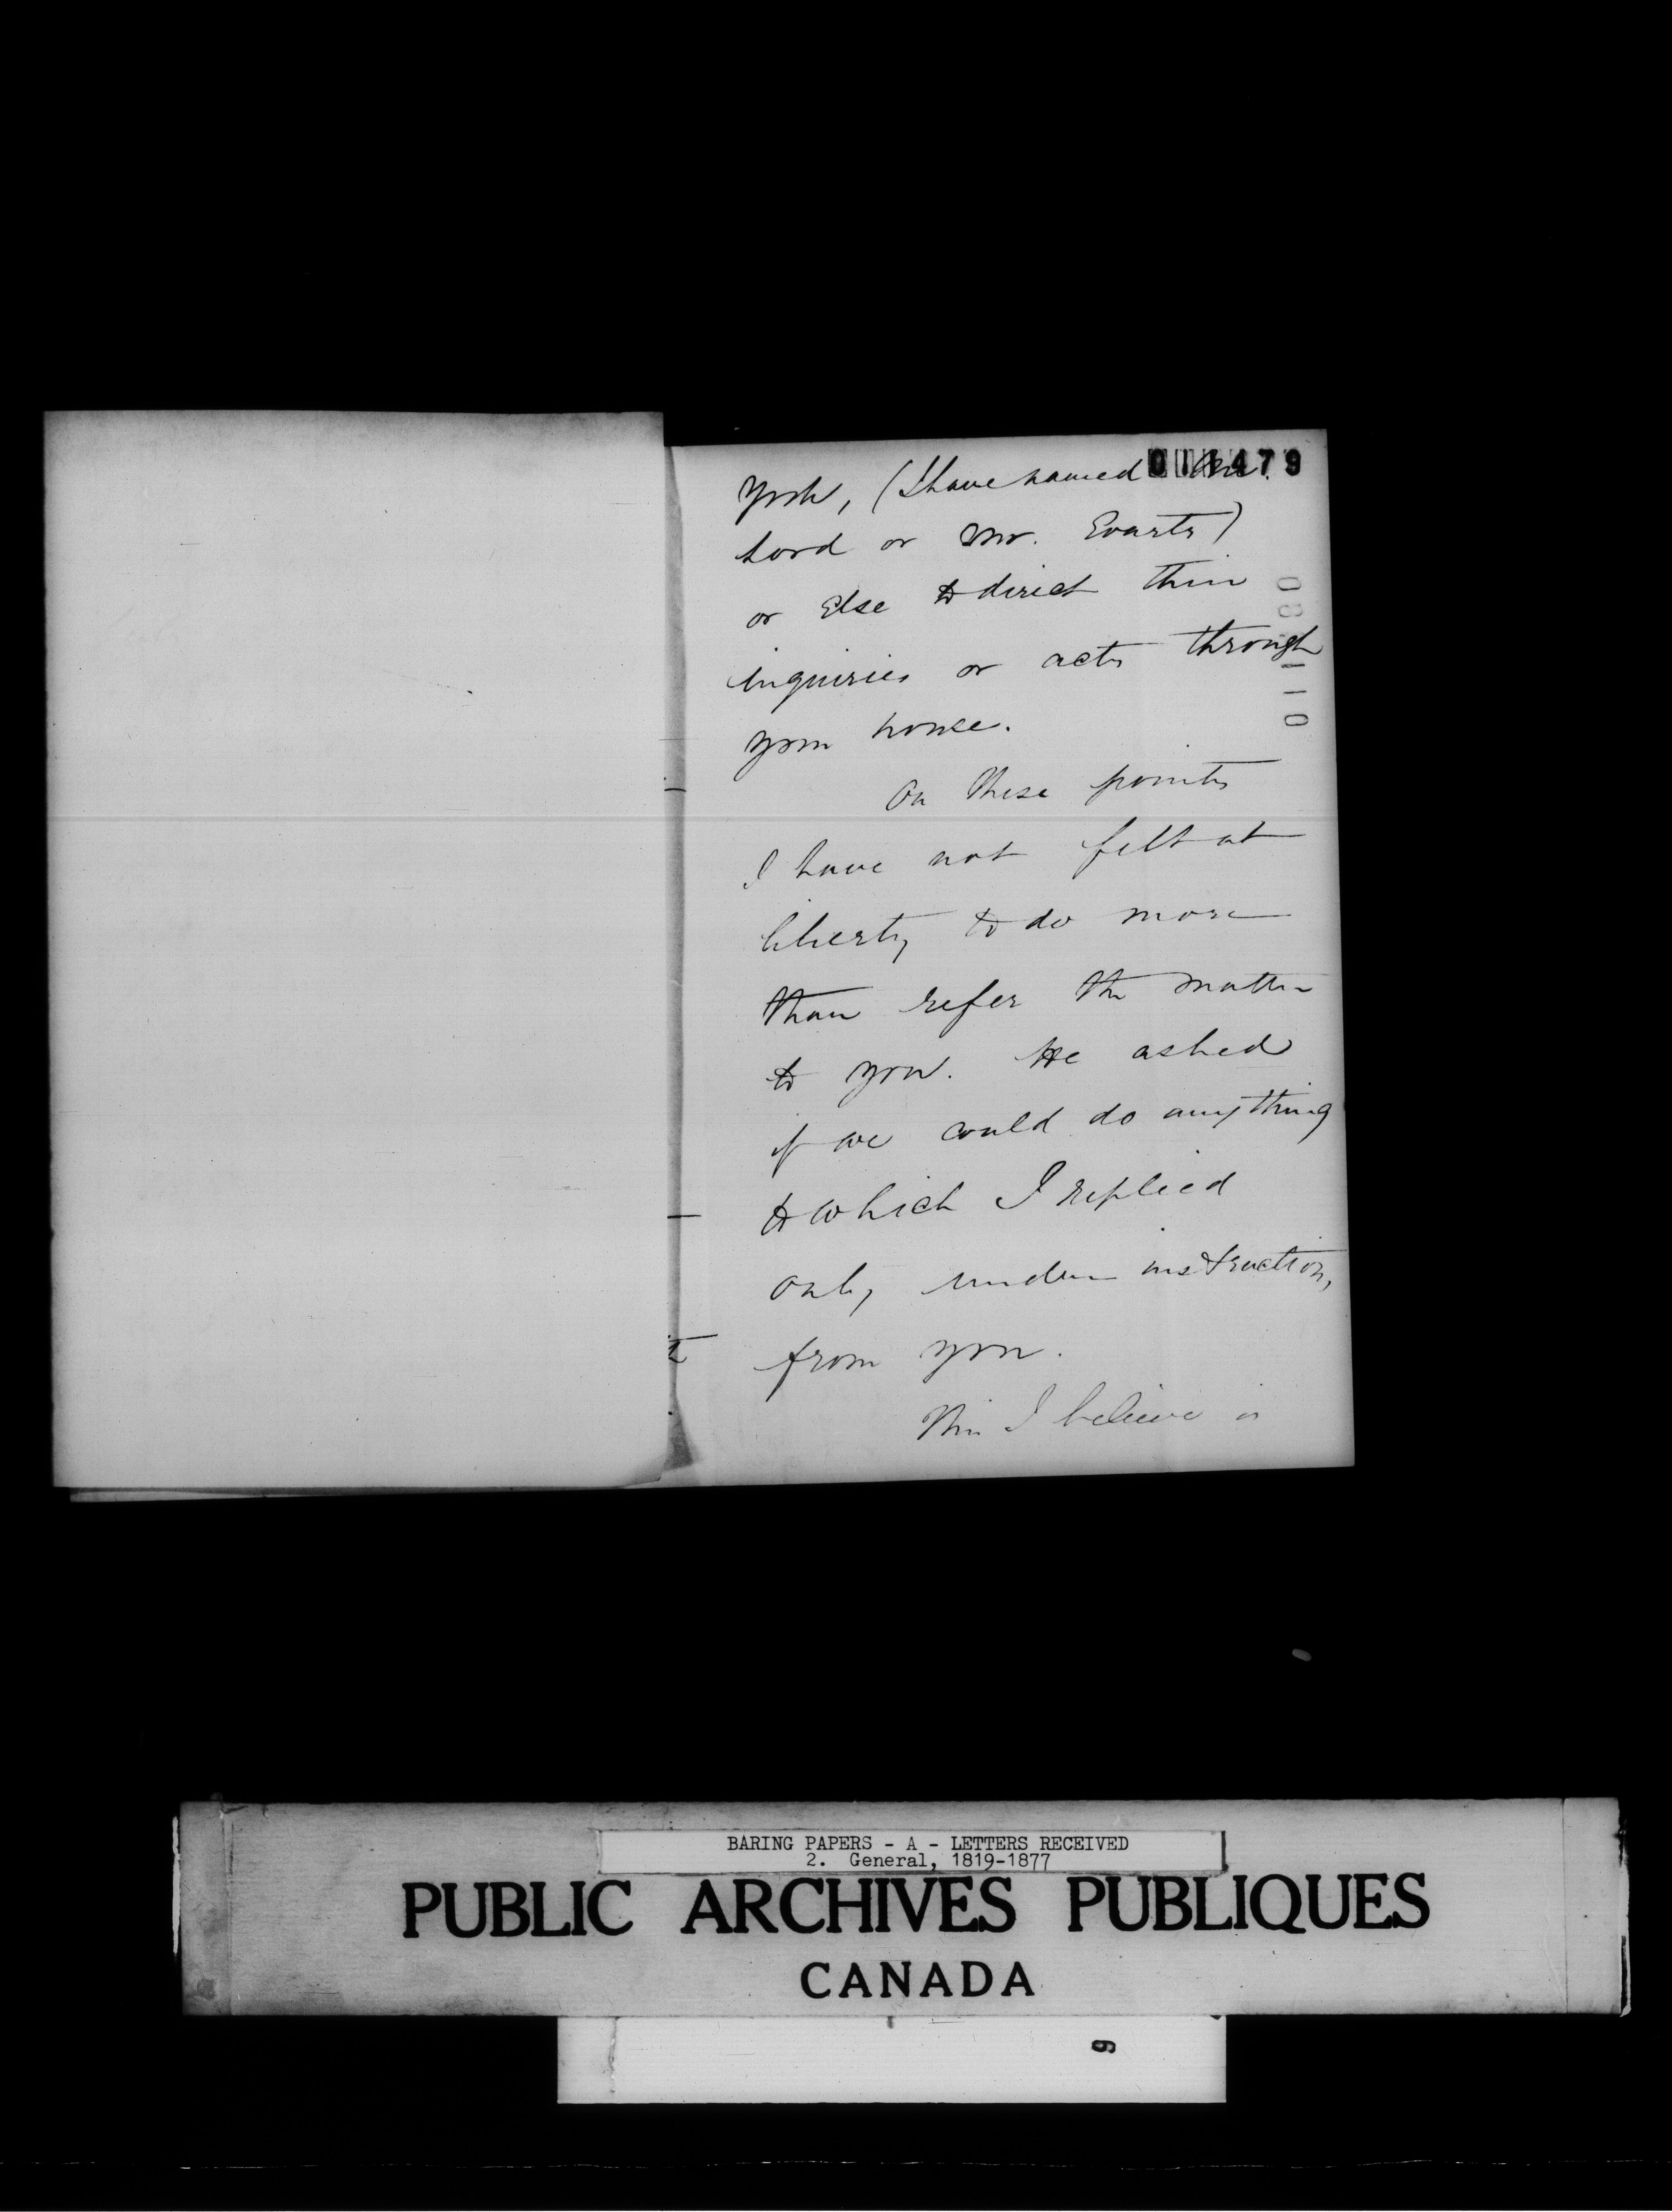 011479
York, (I have named Mr.
Lord or Mr. Evarts)
or Else to direct their
inquiries or acts through
your house.
On these points
I have not felt at
liberty to do more
than refer the matter
to you. He asked
if we could do anything
to which I replied
only under instruction,
from you.
This I believe is
BARING PAPERS - A - LETTERS RECEIVED
2. General, 1819-1877
PUBLIC ARCHIVES PUBLIQUES
CANADA